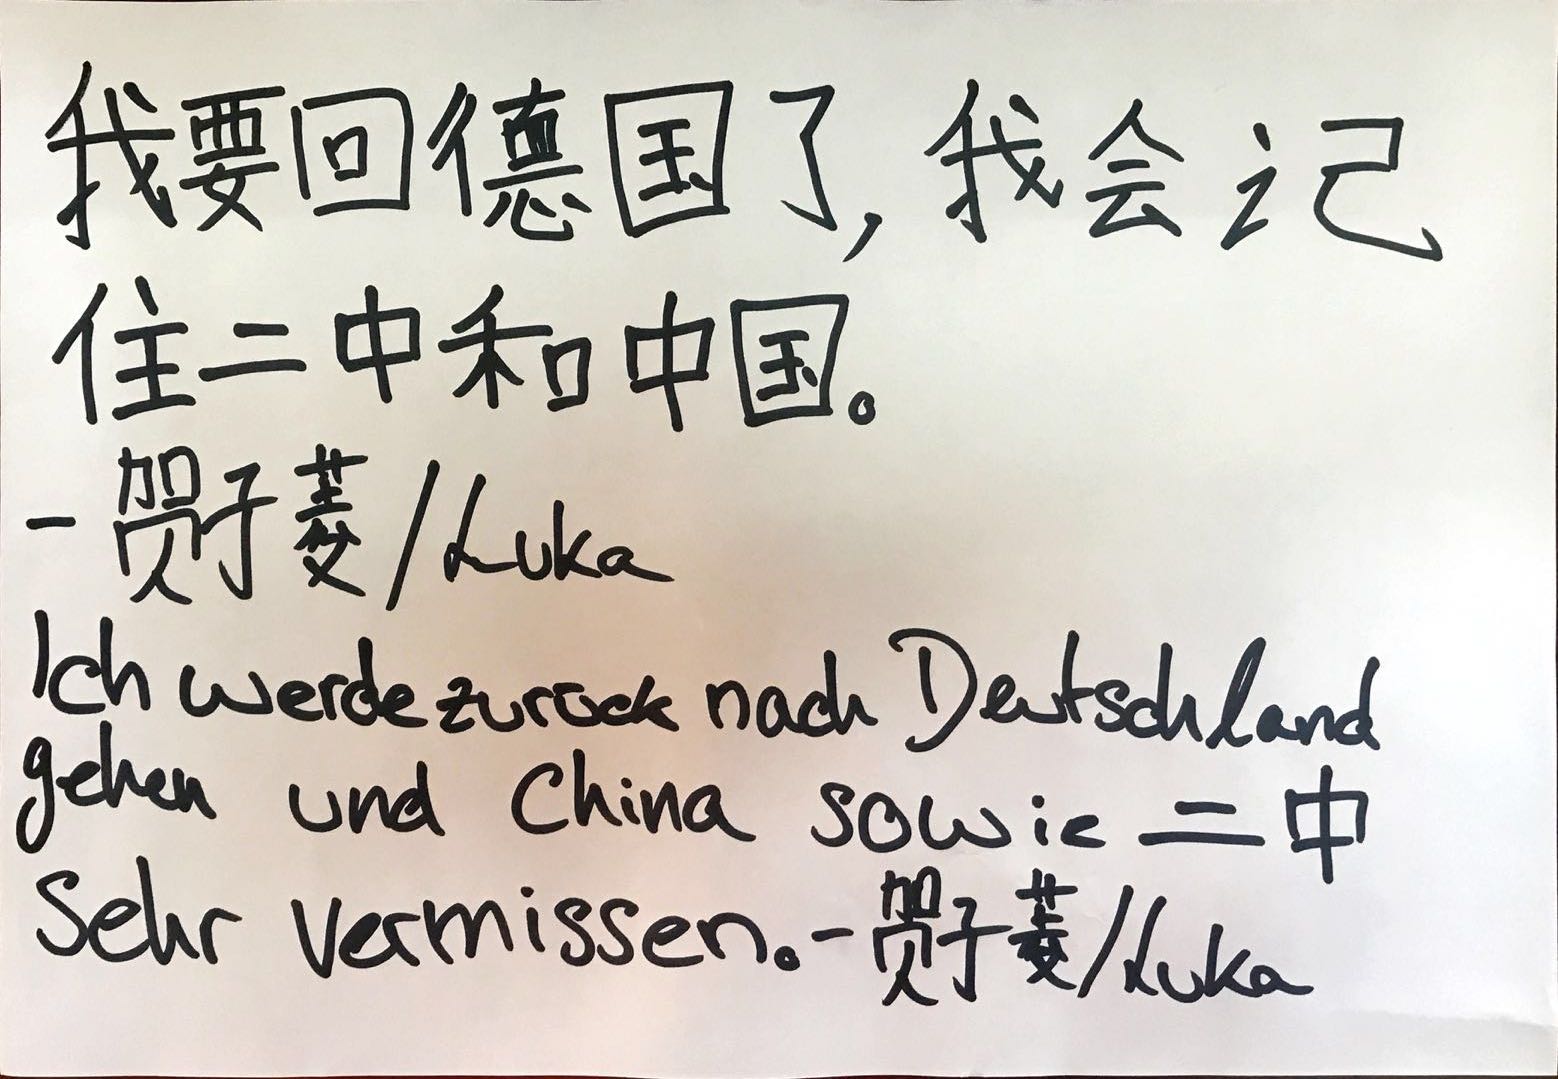 我要回德国了,我会记
住二中和中国。
- 贺子菱/Luka
Ich werde zurück nach Deutschland
gehen und China sowie 二中
sehr vermissen. - 贺子菱/Luka